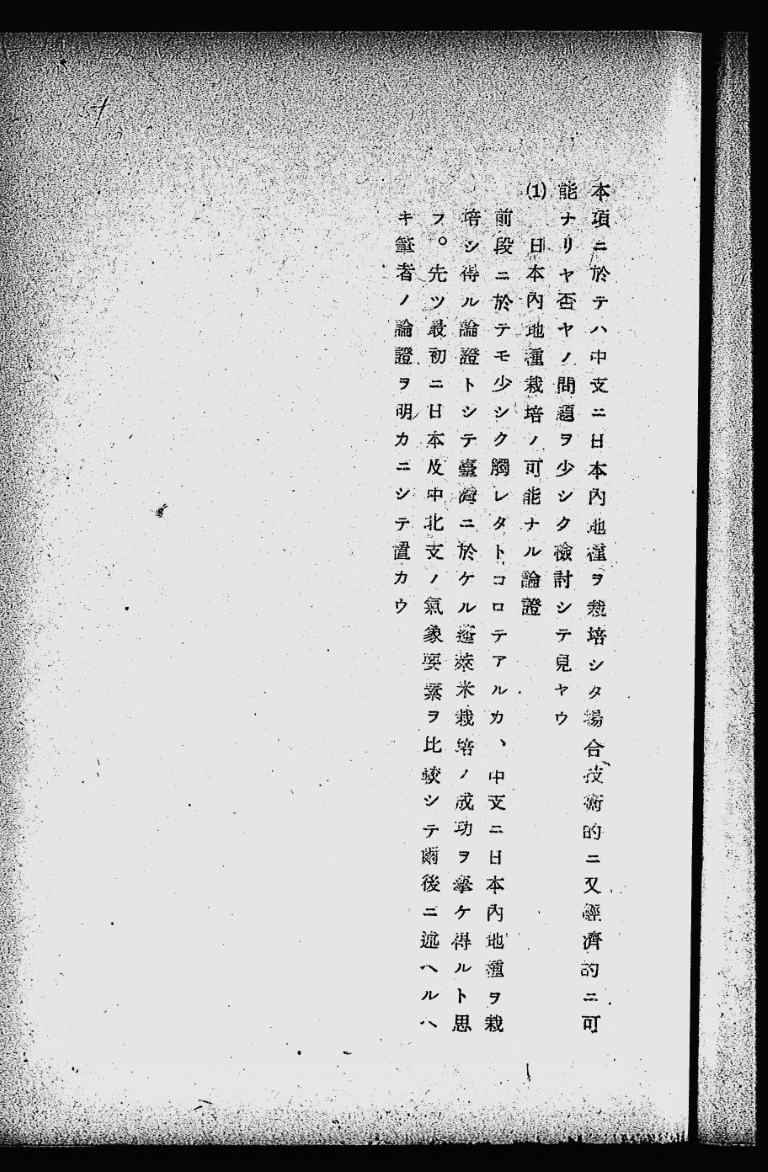 本項ニ於テハ中支ニ日本內地種ヲ栽培シタ場合技術的ニ又經濟的ニ可
能ナリヤ否ヤノ問題ヲ少シク檢討シテ見ヤウ
(1) 日本內地種栽培ノ可能ナル論證
前段ニ於テモ少シク觸レタトコロテアルカ、中支ニ日本內地種ヲ栽
培シ得ル論證トシテ臺灣ニ於ケル蓬萊米栽培ノ成功ヲ擧ケ得ルト思
フ。先ツ最初ニ日本及中北支ノ氣象要素ヲ比較シテ爾後ニ述ヘルヘ
キ筆者ノ論證ヲ明カニシテ置カウ